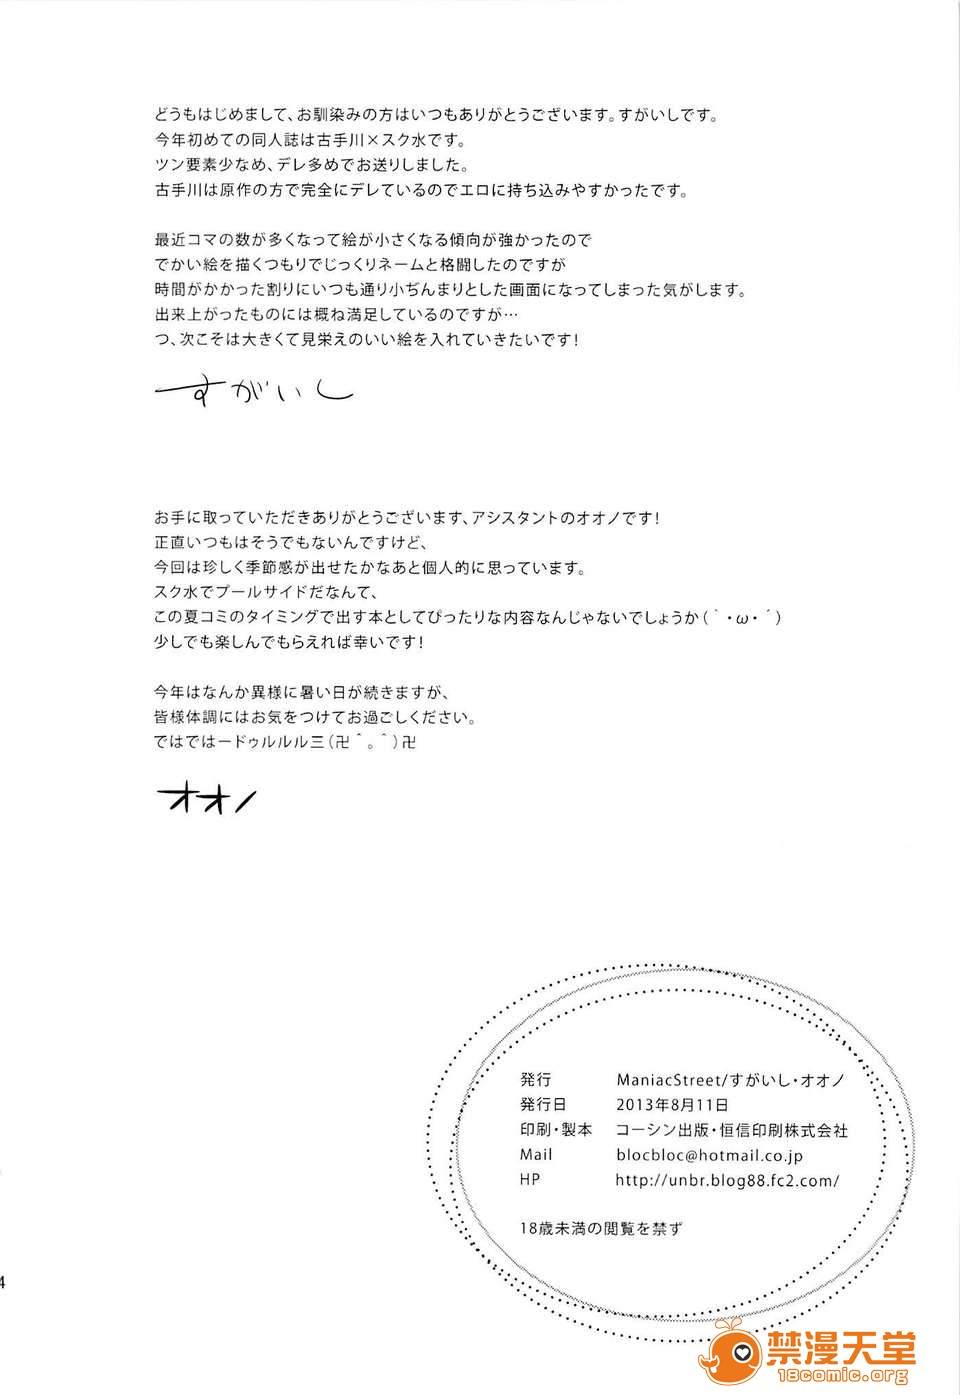 どうもはじめまして、お馴染みの方はいつもありがとうございます。すがいしです。
今年初めての同人誌は古手川×スク水です。
ツン要素少なめ、デレ多めでお送りしました。
古手川は原作の方で完全にデレているのでエロに持ち込みやすかったです。
最近コマの数が多くなって絵が小さくなる傾向が強かったので
でかい絵を描くつもりでじっくりネームと格闘したのですが
時間がかかった割りにいつも通り小ぢんまりとした画面になってしまった気がします。
出来上がったものには概ね満足しているのですが…
つ、次こそは大きくて見栄えのいい絵を入れていきたいです!
すがいし
お手に取っていただきありがとうございます、アシスタントのオオノです!
正直いつもはそうでもないんですけど、
今回は珍しく季節感が出せたかなあと個人的に思っています。
スク水でプールサイドだなんて、
この夏コミのタイミングで出す本としてぴったりな内容なんじゃないでしょうか(｀・ω・´)
少しでも楽しんでもらえれば幸いです!
今年はなんか異様に暑い日が続きますが、
皆様体調にはお気をつけてお過ごしください。
ではではードゥルルル三(卍＾。＾)卍
オオノ
発行 ManiacStreet/すがいし・オオノ
発行日 2013年8月11日
印刷・製本 コーシン出版・恒信印刷株式会社
Mail blocbloc@hotmail.co.jp
HP http://unbr.blog88.fc2.com/
18歳未満の閲覧を禁ず
4
禁漫天堂
18comic.org